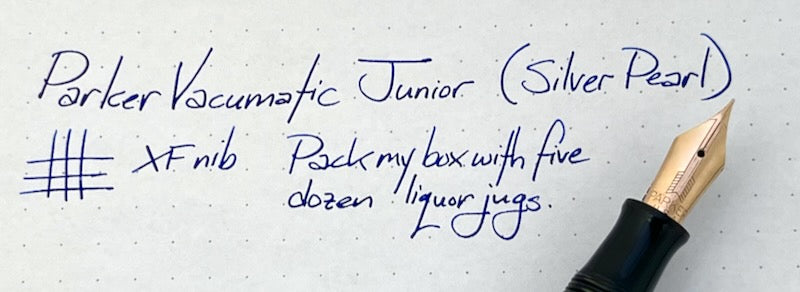 Parker Vacumatic Junior (Silver Pearl)
XF nib Pack my box with five
dozen liquor jugs.
PARKER